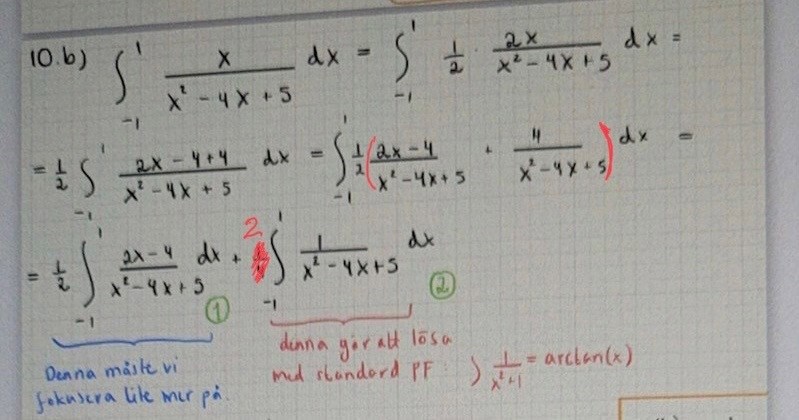 10.b) ∫₋₁¹ x / (x² - 4x + 5) dx = ∫₋₁¹ 1/2 · 2x / (x² - 4x + 5) dx =
= 1/2 ∫₋₁¹ (2x - 4 + 4) / (x² - 4x + 5) dx = ∫₋₁¹ 1/2 ( (2x - 4) / (x² - 4x + 5) + 4 / (x² - 4x + 5) ) dx =
= 1/2 ∫₋₁¹ (2x - 4) / (x² - 4x + 5) dx + 2 ∫₋₁¹ 1 / (x² - 4x + 5) dx
① ②
Denna måste vi
fokusera lite mer på.
denna går att lösa
med standard PF : ∫ 1 / (x² + 1) = arctan(x)